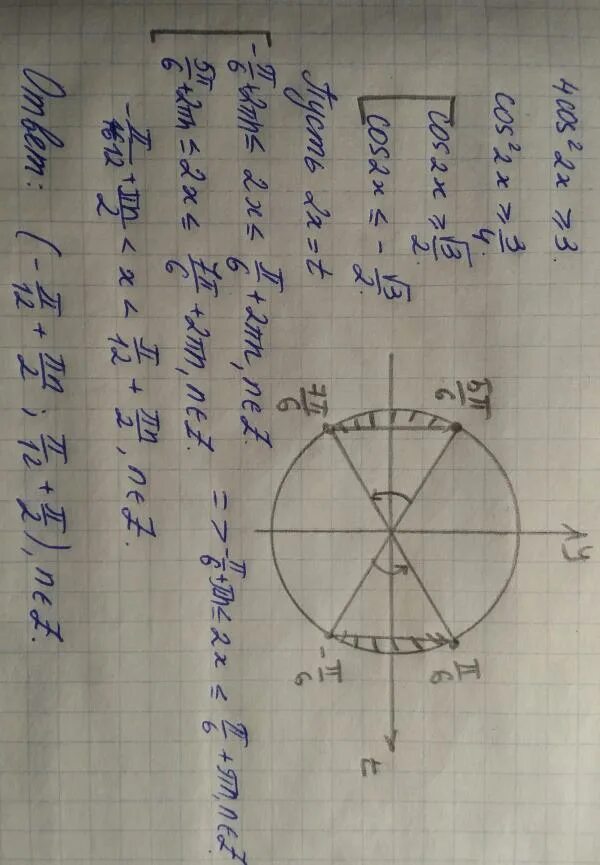 4cos²2x ≥ 3.
cos²2x ≥ 3/4.
cos2x ≥ √3/2.
cos2x ≤ -√3/2.
Пусть 2x = t
-π/6 + 2πn ≤ 2x ≤ π/6 + 2πn, n∈Z.
5π/6 + 2πn ≤ 2x ≤ 7π/6 + 2πn, n∈Z.
=> -π/6 + πn ≤ 2x ≤ π/6 + πn, n∈Z.
-π/12 + πn/2 < x < π/12 + πn/2, n∈Z.
Ответ: (-π/12 + πn/2; π/12 + π/2), n∈Z.
y
5π/6
π/6
t
7π/6
-π/6